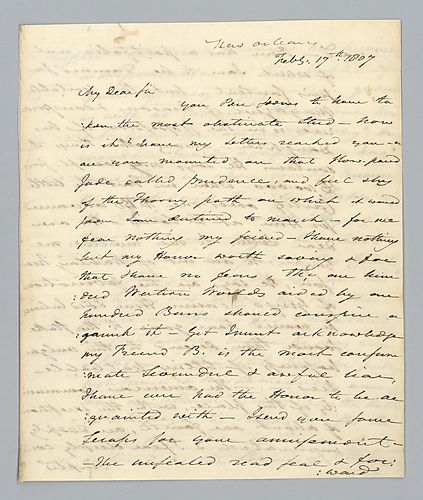 New Orleans
Feby. 17th 1807
My Dear Sir
your Pen seems to have ta
:ken the most obstinate Stud — how
is it? have my letters reached you — or
are you mounted on that slow paced
Jade called prudence, and feel shy
of the Thorny path on which it would
seem I am destined to march — for me
fear nothing my friend — I have nothing
but my Honor worth saving & for
that I have no fears, tho one hun
:dred Western Worlds aided by one
hundred Burrs should conspire a
:gainst it — Yet I must acknowledge
my Friend B. is the most consum
:mate Scoundrel & artful liar,
I have ever had the Honor to be ac
:quainted with — I send you some
Scraps for your amusement —
— The unsealed read seal & for
:ward